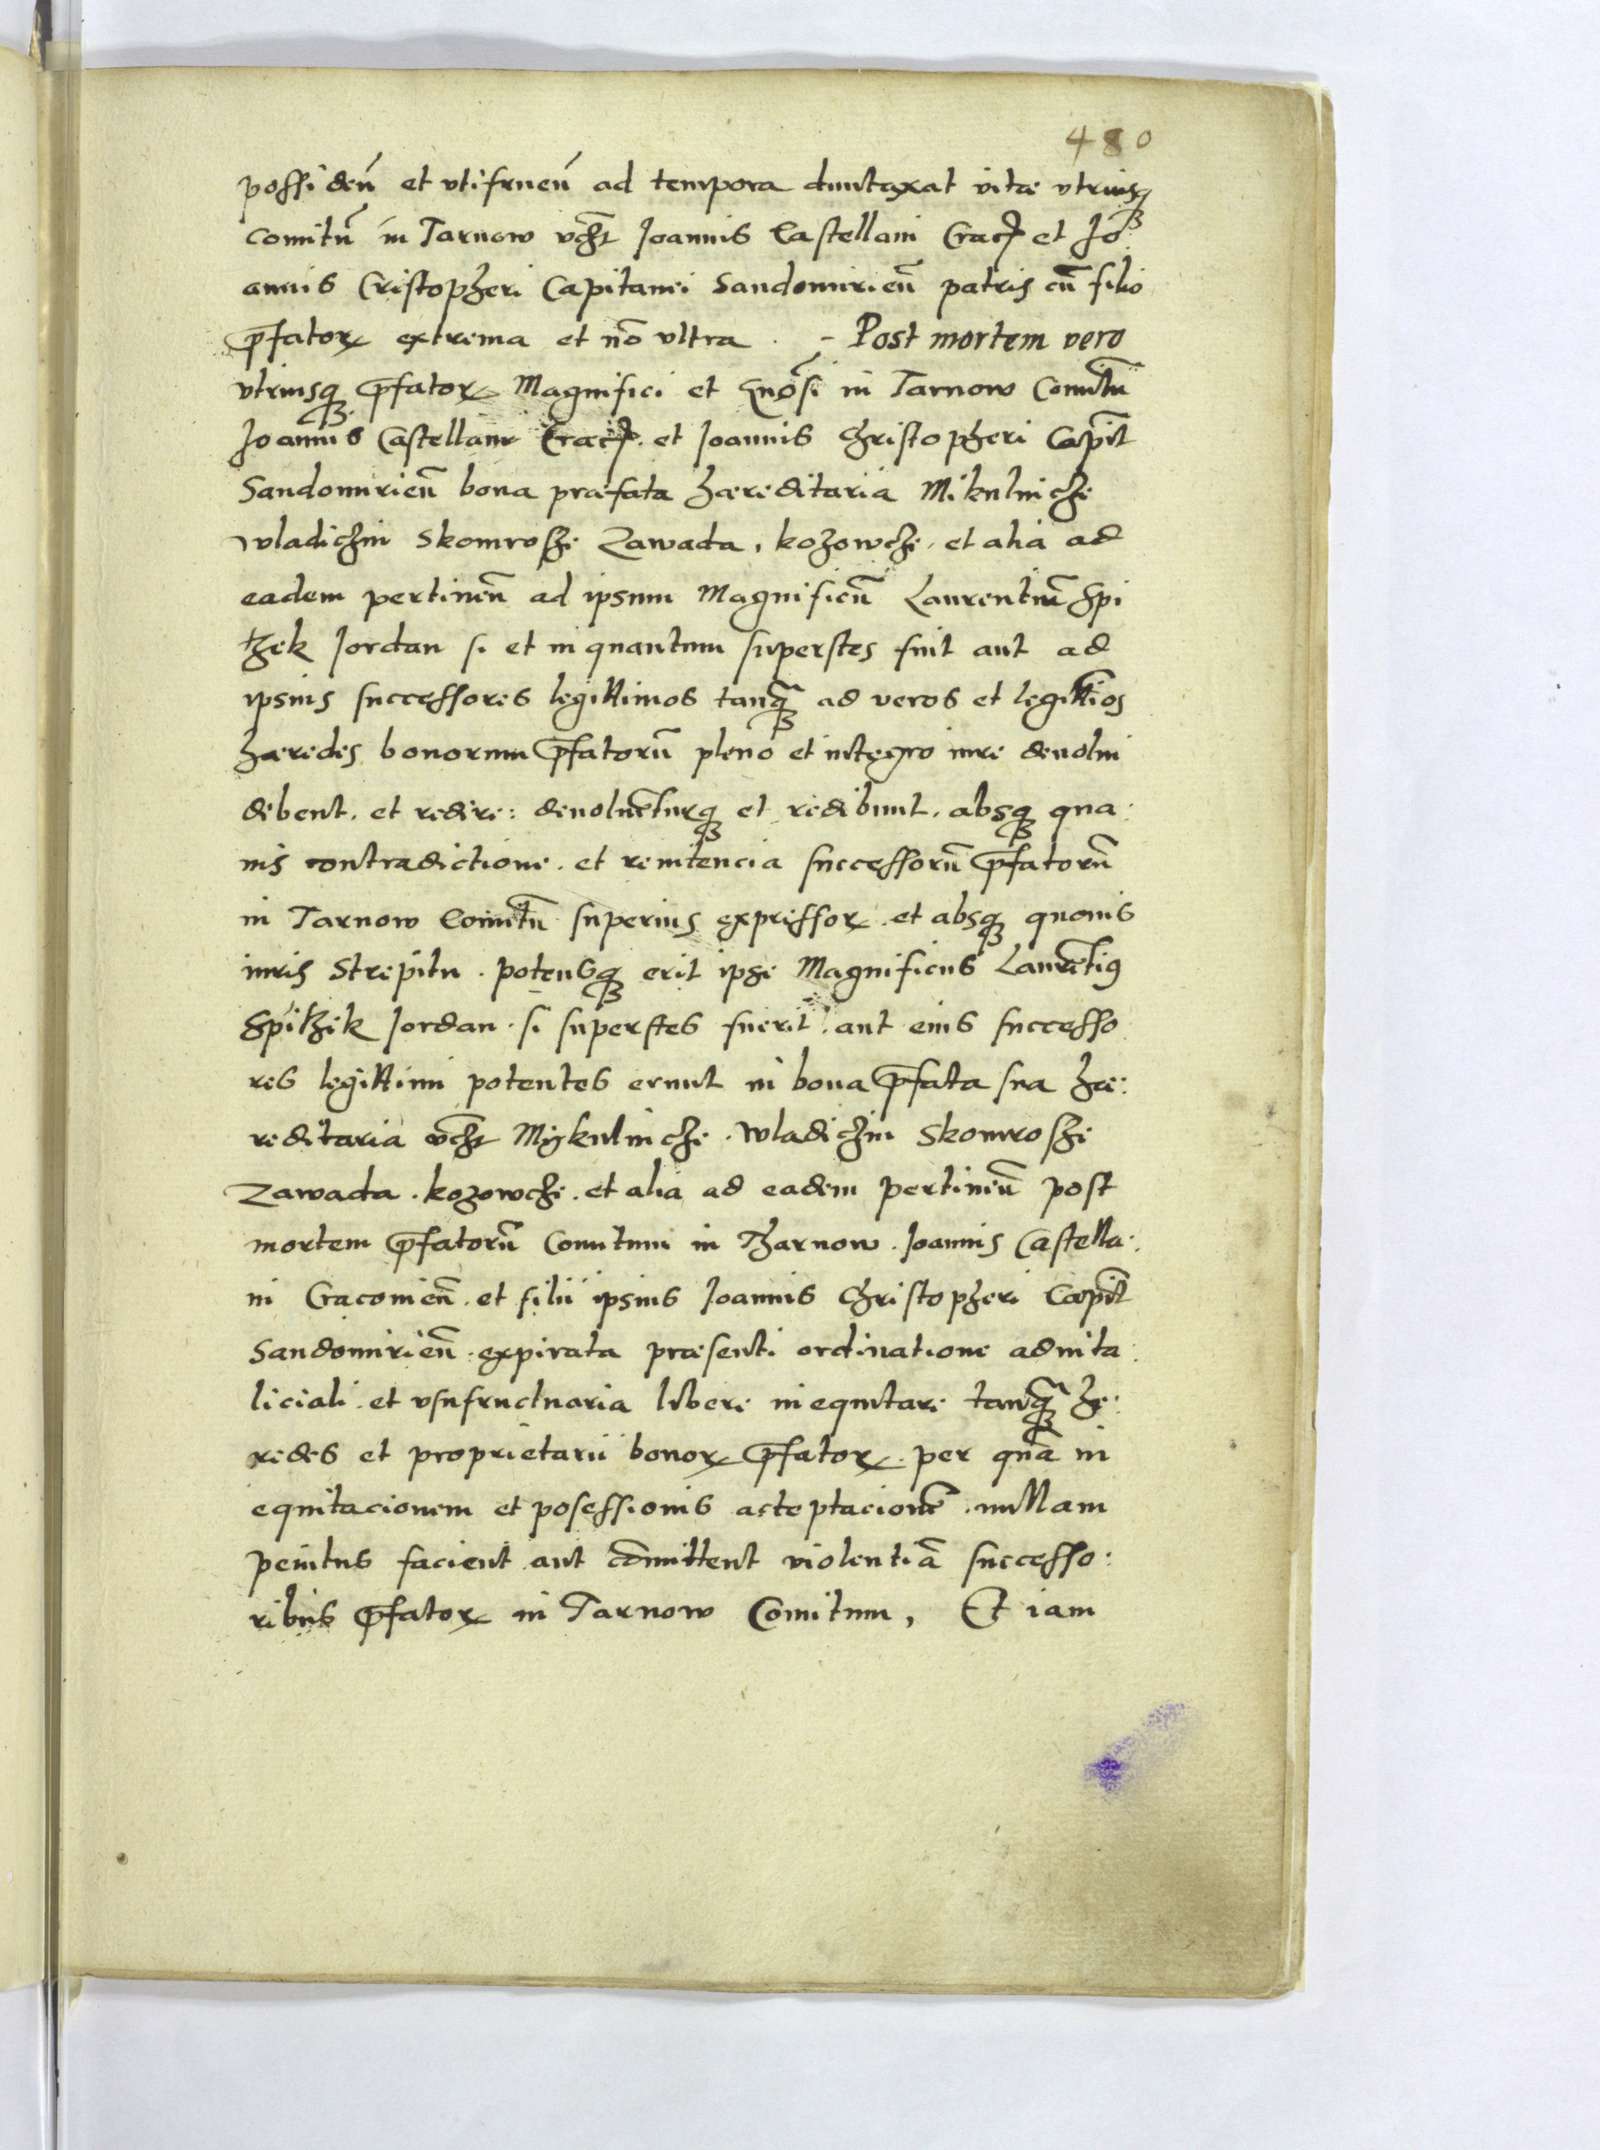 480
possiden̄ et vtifruen̄ ad tempora duntaxat vitæ vtriusq̨
Comitū in Tarnow vcʒ Joannis Castellani Crac̄ et Jo
annis Cristopheri Capitanei Sandomirien̄ patris cū filio
p̄fatoꝝ extrema et nō vltra . - Post mortem vero
vtriusq̨ p̄fatoꝝ Magnifici et Gnōsi in Tarnow Comitū
Joannis Castellani Crac̄. et Joannis Christopheri Capit̄
Sandomirien̄ bona præfata hæreditaria Mikulincze
Wladiczin Skomrosze Zawada, kozowcze. et alia ad
eadem pertinen̄ ad ipsum Magnificū Laurentiū Spi
tʒek Jordan si et in quantum superstes fuit aut ad
ipsius successores legittimos tanq̨̄ ad veros et legittīos
hæredes bonorum p̄fatorū pleno et integro iure deuolui
debent. et redire: deuoluēturq̨ et redibunt. absq̨ qua:
uis contradictione. et renitencia successorū p̄fatorū
in Tarnow Comitū superius expressoꝝ. et absq̨ quouis
iuris Strepitu. potensq̨ erit ipse Magnificus Laurētiꝰ
Spitʒek Jordan. si superstes fuerit. aut eius successo
res legittimi potentes erunt in bona p̄fata sua hæ:
reditaria vcʒ Mÿkulincze. Wladiczin Skomrosze
Zawada. kozowcze. et alia ad eadem pertinen̄ post
mortem p̄fatorū Comitum in Tharnow. Joannis Castella:
ni Cracouien̄. et filii ipsius Joannis Christopheri Capit̄
Sandomirien̄. expirata præsenti ordinatione aduita:
liciali. et vsufructuaria libere inequitare tanq̨̄ he:
redes et proprietarii bonoꝝ p̄fatoꝝ. per quā in
equitacionem et posessionis acceptacionē. nullam
penitus facient aut cōmittent violentiā successo:
ribus p̄fatoꝝ in Tarnow Comitum, Et iam